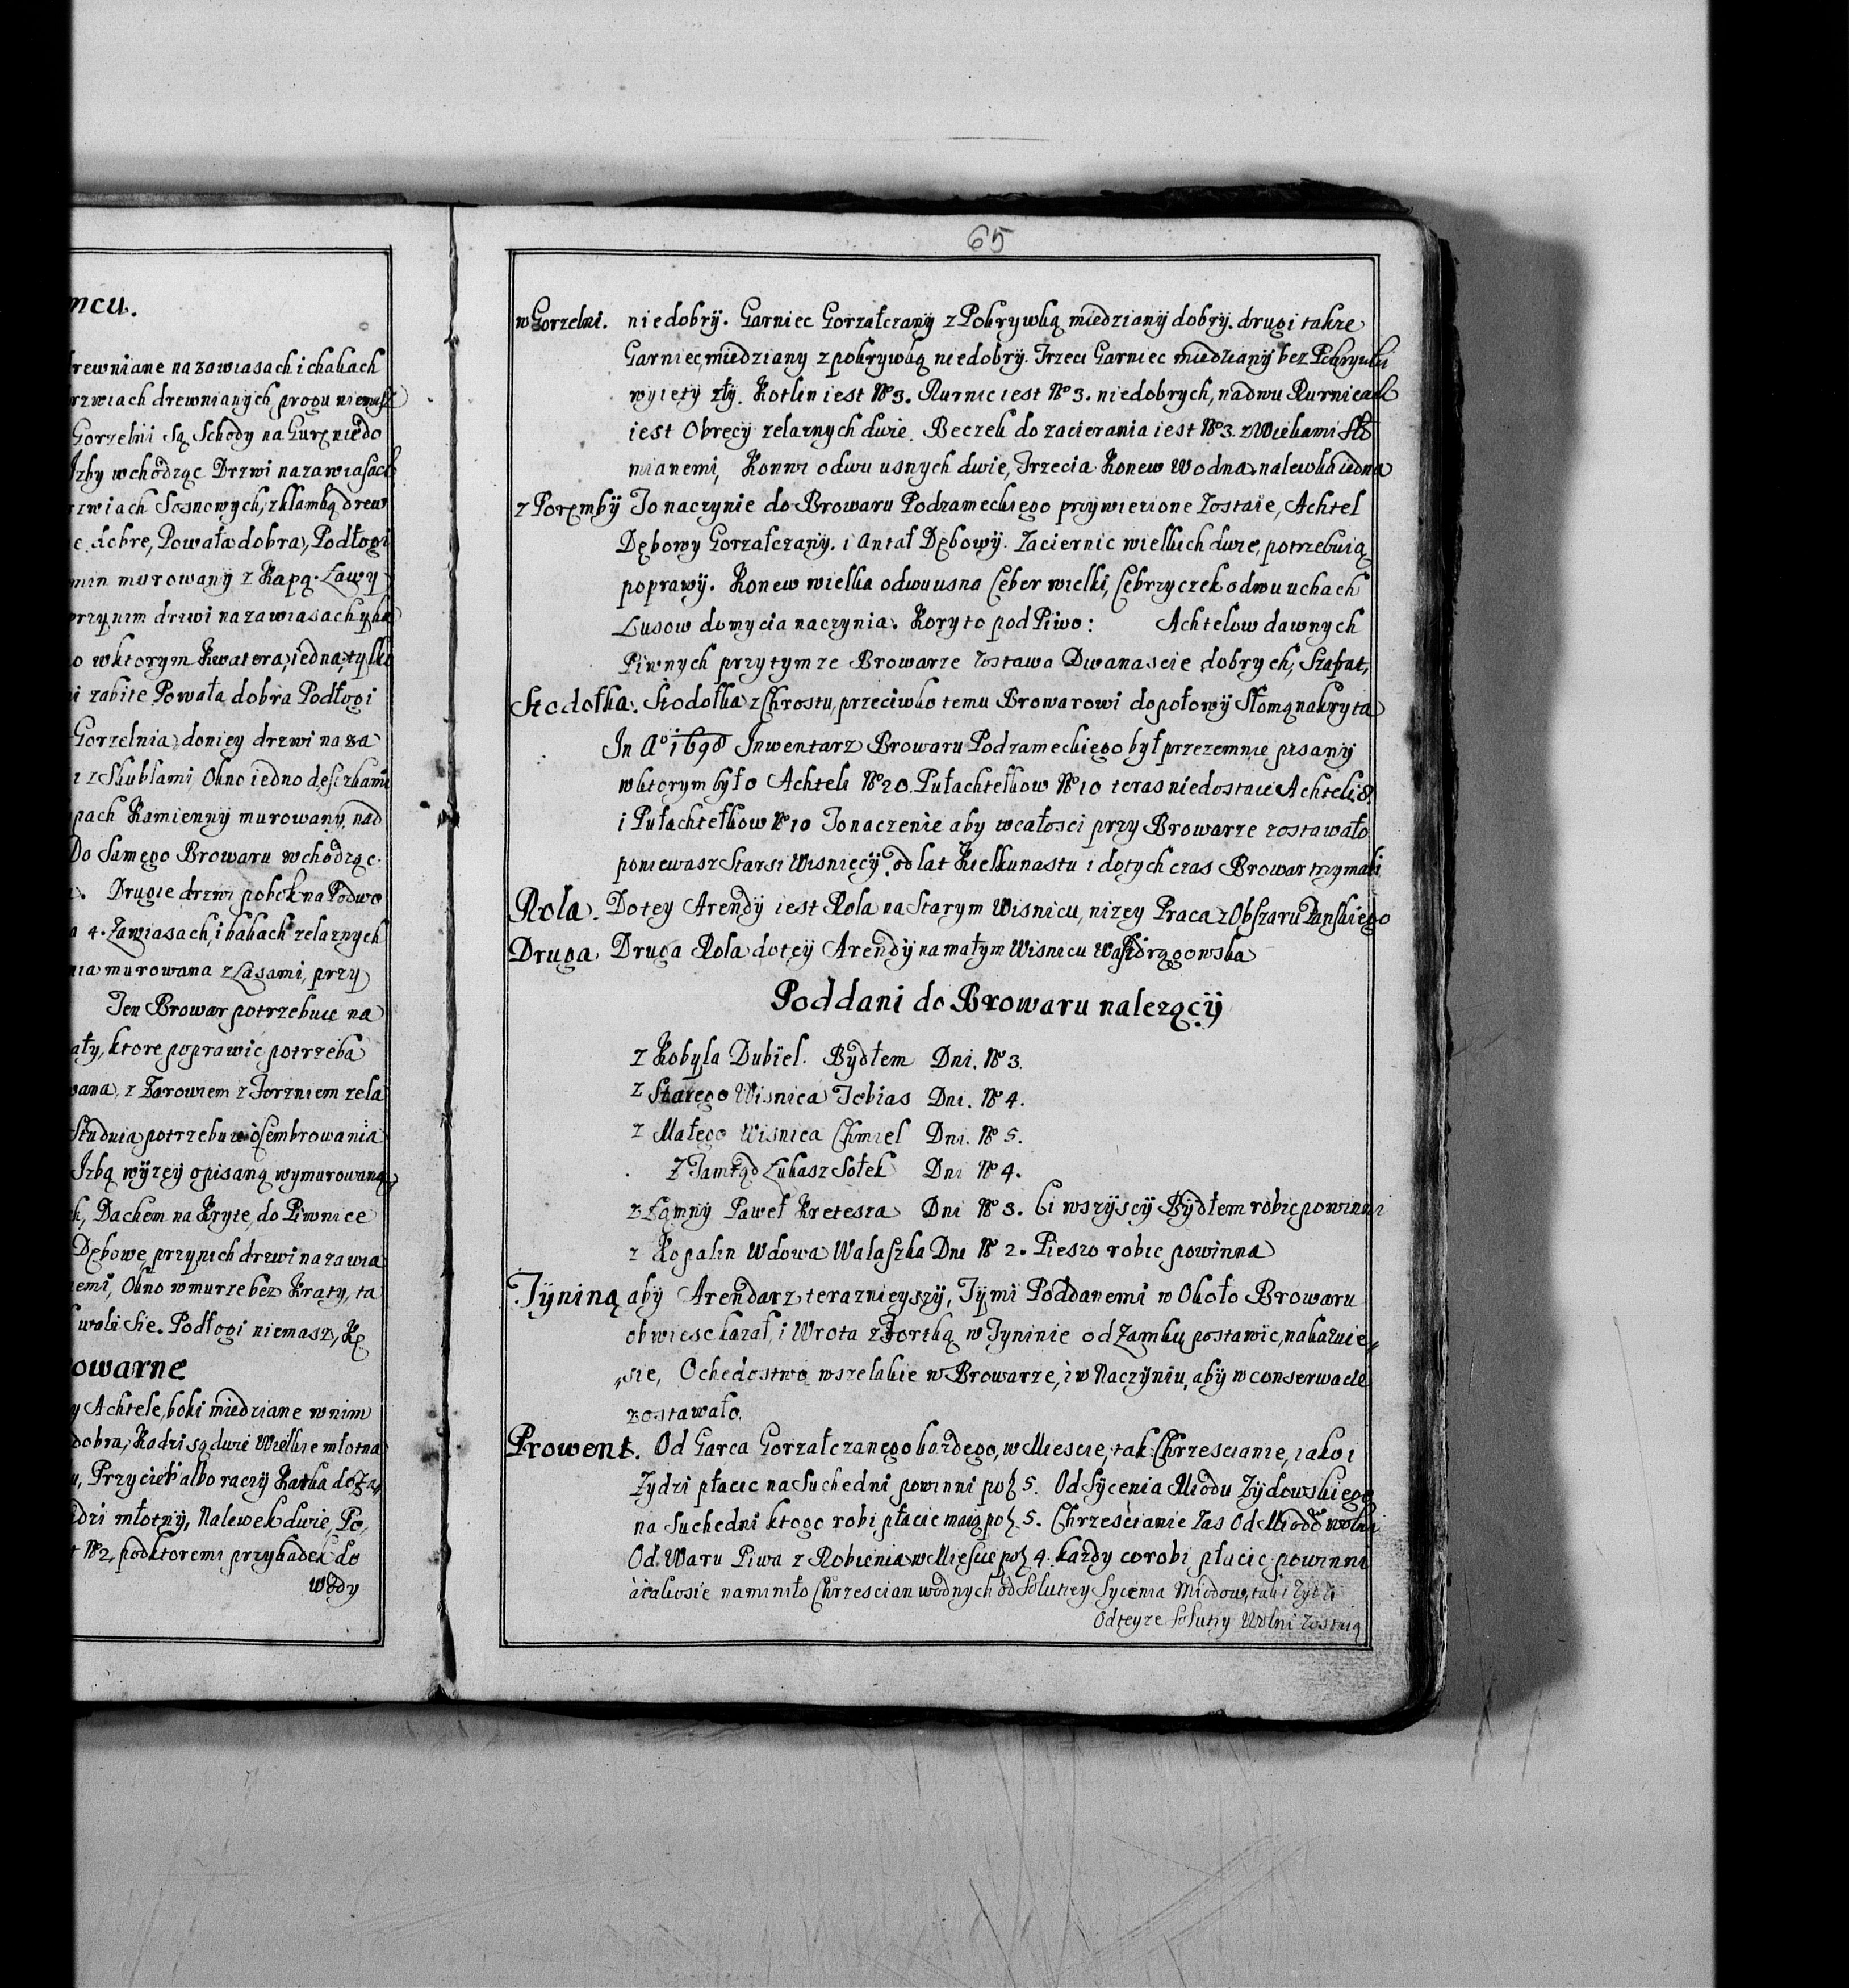 mcu.
drewniane na zawiasach i chakach
drzwiach drewnianych progu niemasz
Gorzelni są Schody na Gurę niedo
Izby wchodząc Drzwi na zawiasach
drzwiach Sosnowych, z klamką drew
e dobre, Powała dobra, Podłogi
min murowany z Kapą. Ławy
przy nim drzwi na zawiasach y ha
o wktorym Kwatera iedna tylko
i zabite Powała dobra Podłogi
Gorzelnia do niey drzwi na za
i z Skublami, Okno iedno deszczkami
pach Kamienny murowany, nad
Do Samego Browaru wchodząc
Drugie drzwi pobok na Podwo
a 4. Zawiasach, i hakach zelaznych
nia murowana z Lasami, przy
Ten Browar potrzebuie na
ały, ktore poprawic potrzeba
wana, z Zarowiem z Forzniem zela
Studnia potrzebuie osembrowania
Izbą wyzey opisaną wymurowaną
k, Dachem na Kryte, do Piwnice
Dębowe, przy nich drzwi na zawia
iemi, Okno w murze bez Kraty, ta
wali sie. Podłogi niemasz, Kę
owarne
y Achtele, boki miedziane w nim
dobra, Kadzi są dwie Wielkie młotna
u, Przycieh albo raczy Katka do Za
dzi młotny, Nalewek dwie, Po
t No 2, pod ktoremi przykadek do
wody
65
w Gorzelni. niedobry. Garniec Gorzałczany z Pokrywką miedziany dobry. drugi takze
Garniec miedziany z pokrywką niedobry. Trzeci Garniec miedziany bez Pokrywki
wyięty zły. Kotlin iest No 3. Rurnic iest No 3. niedobrych, na dwu Rurnicach
iest Obręcy zelaznych dwie. Beczek do zacierania iest No 3. z Wiekami Sło
mianemi, Konwi o dwu usnych dwie, Trzecia Konew Wodna, nalewka iedna
z Poręmby To naczynie do Browaru Podzameckiego przywiezione Zostaie, Achtel
Dębowy Gorzałczany. i Antał Dębowy. Zaciernic wielkich dwie, potrzebuią
poprawy. Konew wielka o dwu usna Ceber wielki, Cebrzyczek o dwu uchach
Lusow do mycia naczynia. Koryto pod Piwo: Achtelow dawnych
Piwnych przy tymze Browarze zostawa Dwanascie dobrych, Szaflat,
Stodołka. Stodołka z Chrostu, przeciwko temu Browarowi do połowy Słomą nakryta
In Ao 1698 Inwentarz Browaru Podzameckiego był przezemnie pisany
wktorym było Achteli No 20. Pułachtełkow No 10 teras niedostaie Achteli 8.
i Pułachtełkow No 10 To naczenie aby w całosci przy Browarze zostawało
poniewasz Starsi Wisniecy od lat Kielkunastu i dotychczas Browar trzymali
Rola. Do tey Arendy iest Rola na Starym Wisnicu, nizey Praca z Obszaru Panskiego
Druga Druga Rola do tey Arendy na małym Wisnicu Waszdrągowska
Poddani do Browaru nalezący
z Kobyla Dubiel. Bydłem Dni. No 3.
z Starego Wisnica Tobias Dni. No 4.
z Małego Wisnica Chmiel Dni. No 5.
z Jamtąd Łukasz Sołek Dni No 4.
z Łomny Paweł Kretesza Dni No 3. Ci wszyscy Bydłem robic powinni
z Kopalin Wdowa Walaszka Dni No 2. Pieszo robic powinna
Tyniną aby Arendarz teraznieyszy, Tymi Poddanemi w Około Browaru
obwiesc kazał, i Wrota z Fortką w Tyninie od Zamku postawic, nakazuie
sie, Ochedostwo wszelakie w Browarze, i w Naczyniu, aby w conserwacie
zostawało.
Prowent. Od Garca Gorzałczanego kazdego, w Miescie, tak Chrzescianie, iako i
Zydzi płacic na Suchedni powinni po zł 5. Od Sycenia Miodu Zydowskiego
na Suchedni ktogo robi płacic maią po zł 5. Chrzescianie Zas Od Miodo wolni
Od Waru Piwa z Robienia w Miescie po zł 4. kazdy co robi płacic powinni
a iakosie naminiło Chrzescian wodnych od Solutiey Sycenia Miodow, tak i Zydzi
Od teyze Solutiy Wolni zostaią